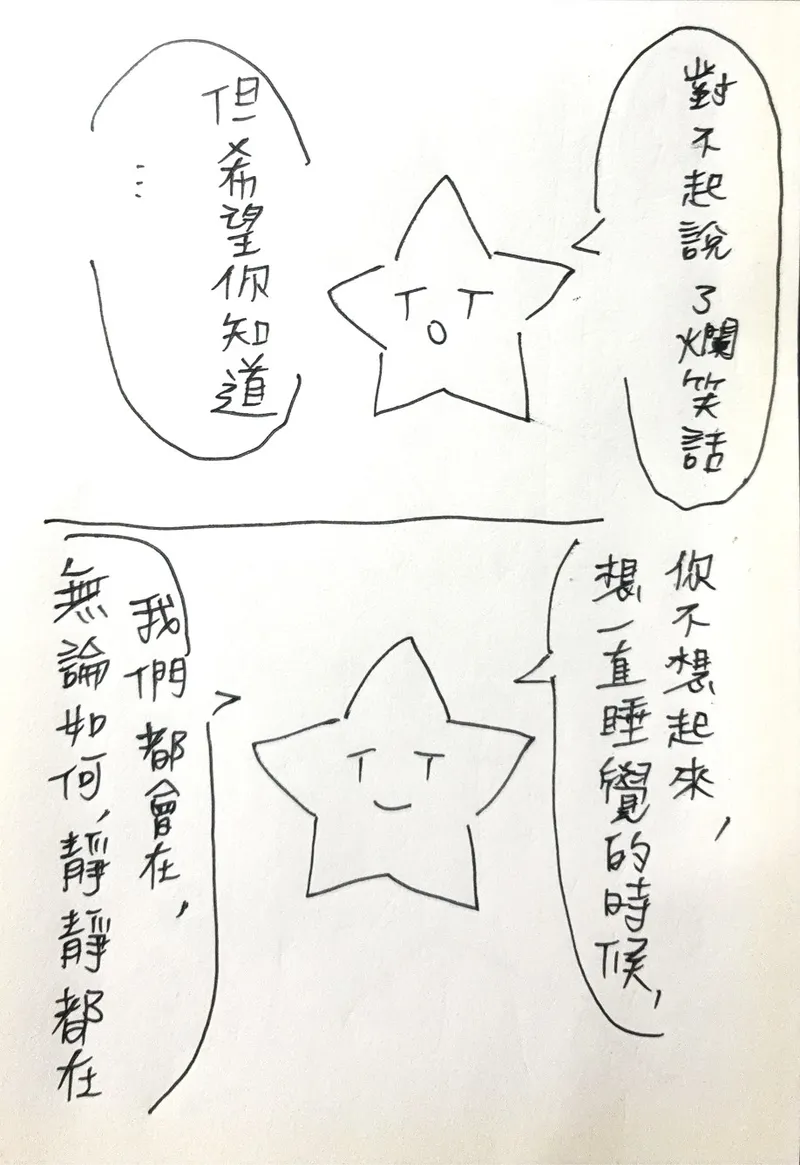 對不起說了爛笑話
但希望你知道
⋯
你不想起來，
想一直睡覺的時候，
我們都會在，
無論如何，靜靜都在